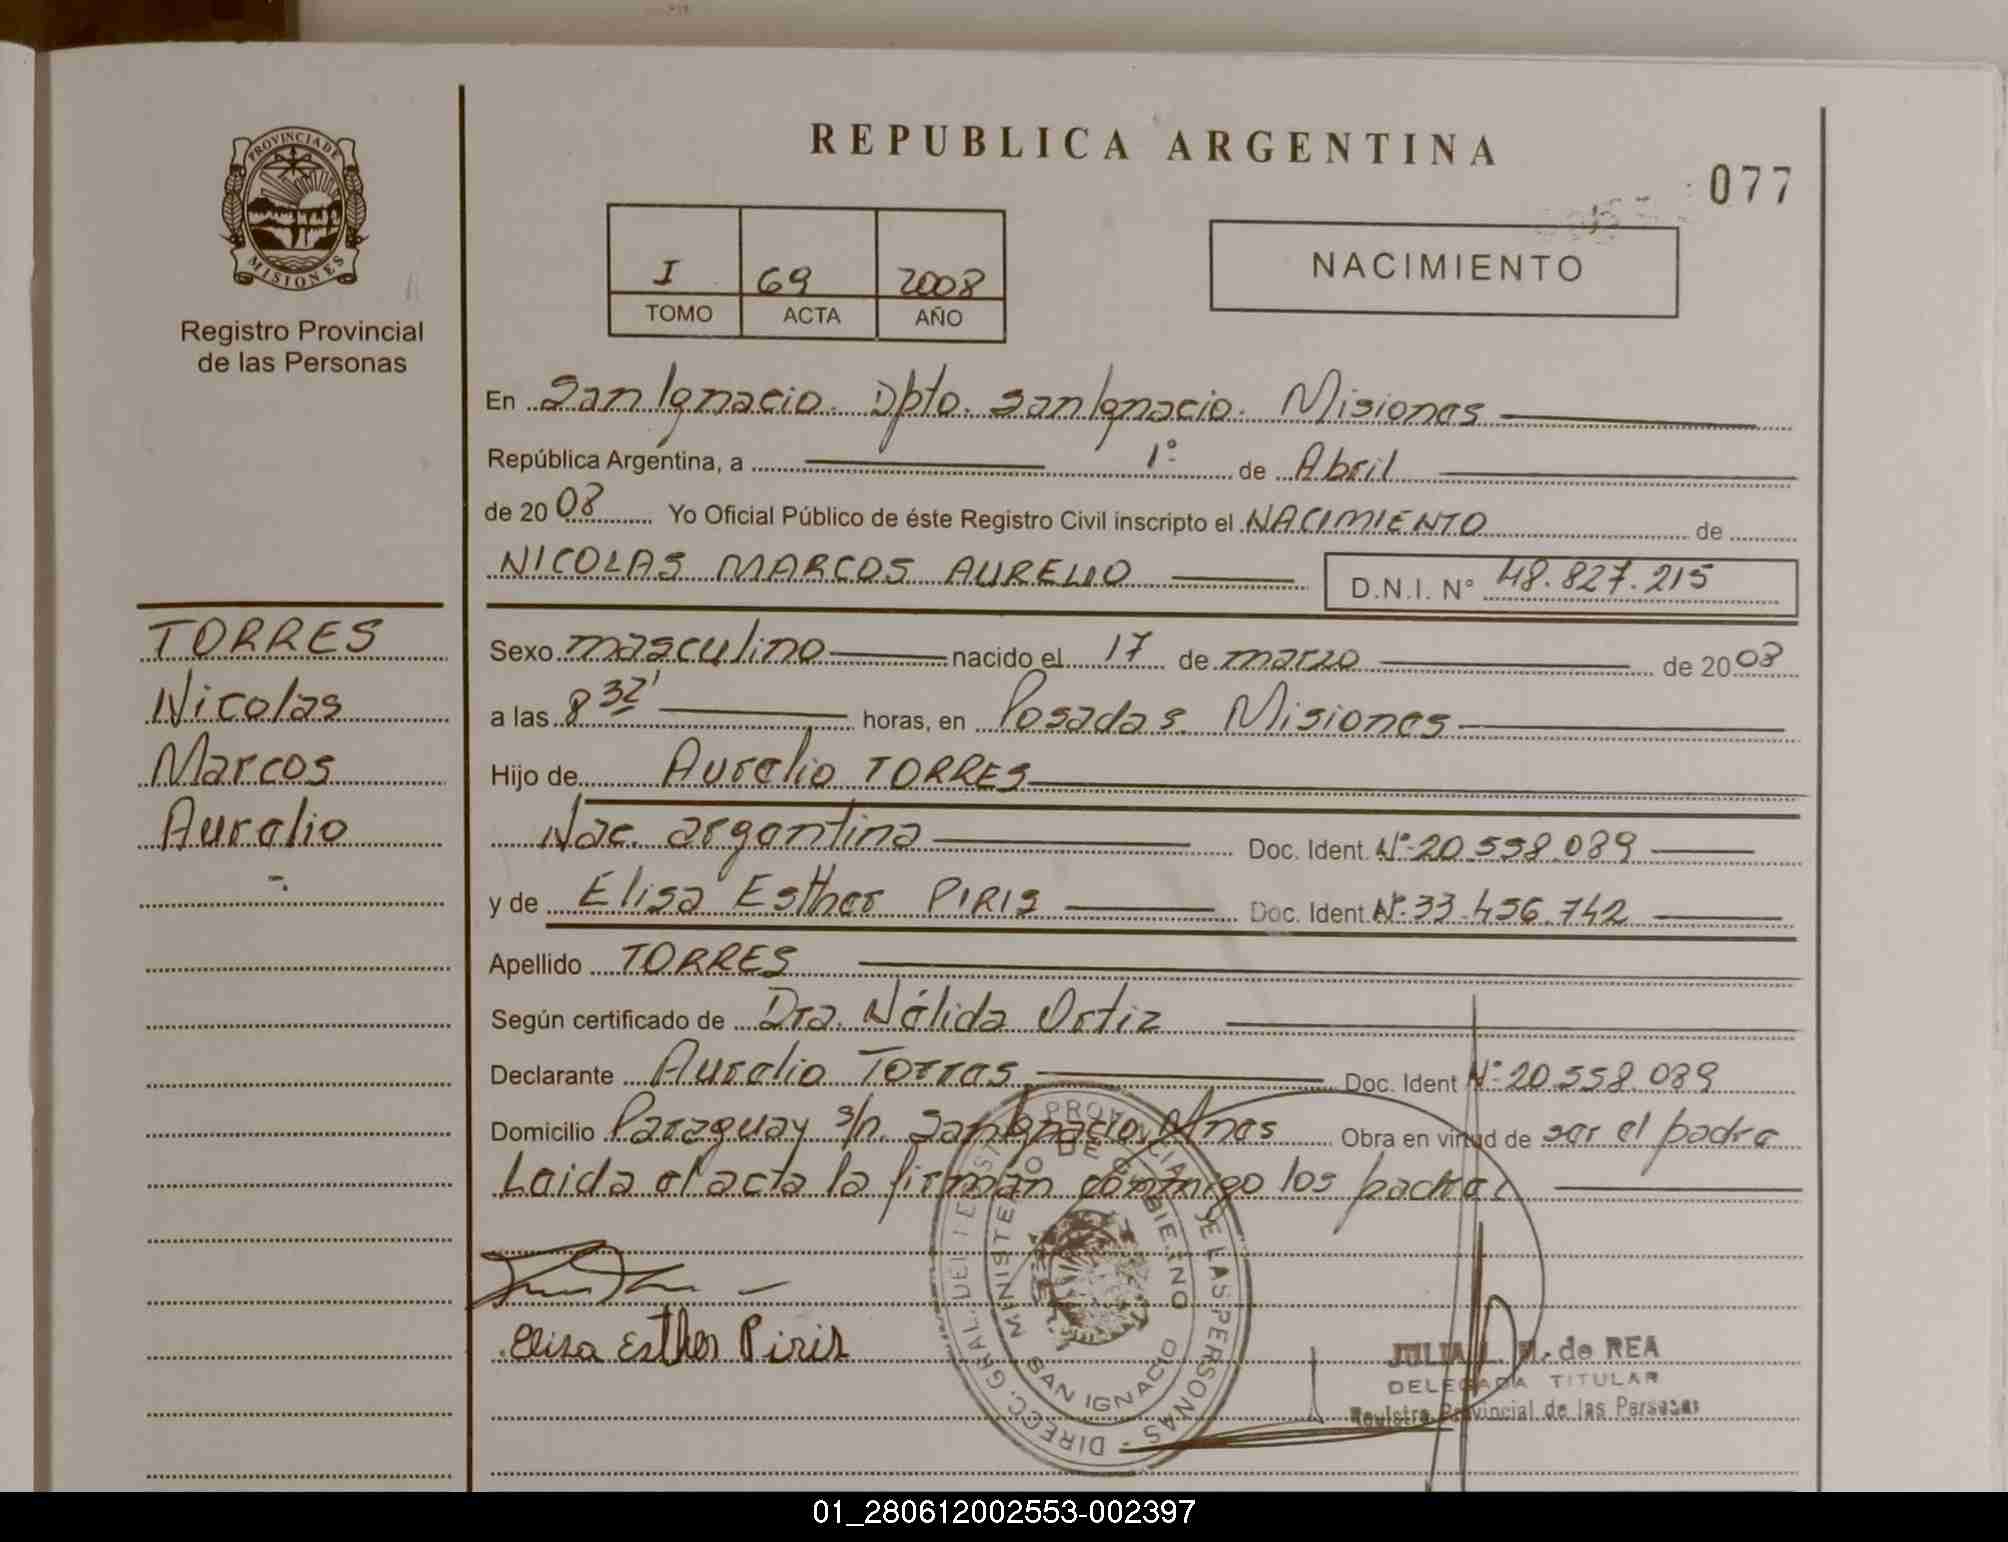 REPUBLICA ARGENTINA
077
PROVINCIA DE
MISIONES
Registro Provincial
de las Personas
I 69 2008
TOMO ACTA AÑO
NACIMIENTO
En San Ignacio. Dpto. San Ignacio. Misiones
República Argentina, a 1º de Abril
de 2008 Yo Oficial Público de éste Registro Civil inscripto el NACIMIENTO de
NICOLAS MARCOS AURELIO D.N.I. Nº 48.827.215
TORRES
Nicolas
Marcos
Aurelio
Sexo masculino nacido el 17 de marzo de 2008
a las 8 32' horas, en Posadas. Misiones
Hijo de Aurelio TORRES
Nac. argentina Doc. Ident. Nº 20.558.089
y de Elisa Esther PIRIS Doc. Ident. Nº 33.456.742
Apellido TORRES
Según certificado de Dra. Nélida Ortiz
Declarante Aurelio Torres Doc. Ident Nº 20.558.089
Domicilio Paraguay s/n. San Ignacio. Mnes Obra en virtud de ser el padre
Leida el acta la firman conmigo los padres
Elisa Esther Piris
MINISTERIO DE GOBIERNO
SAN IGNACIO
JULIA L. M. de REA
DELEGADA TITULAR
Registro Provincial de las Personas
01_280612002553-002397